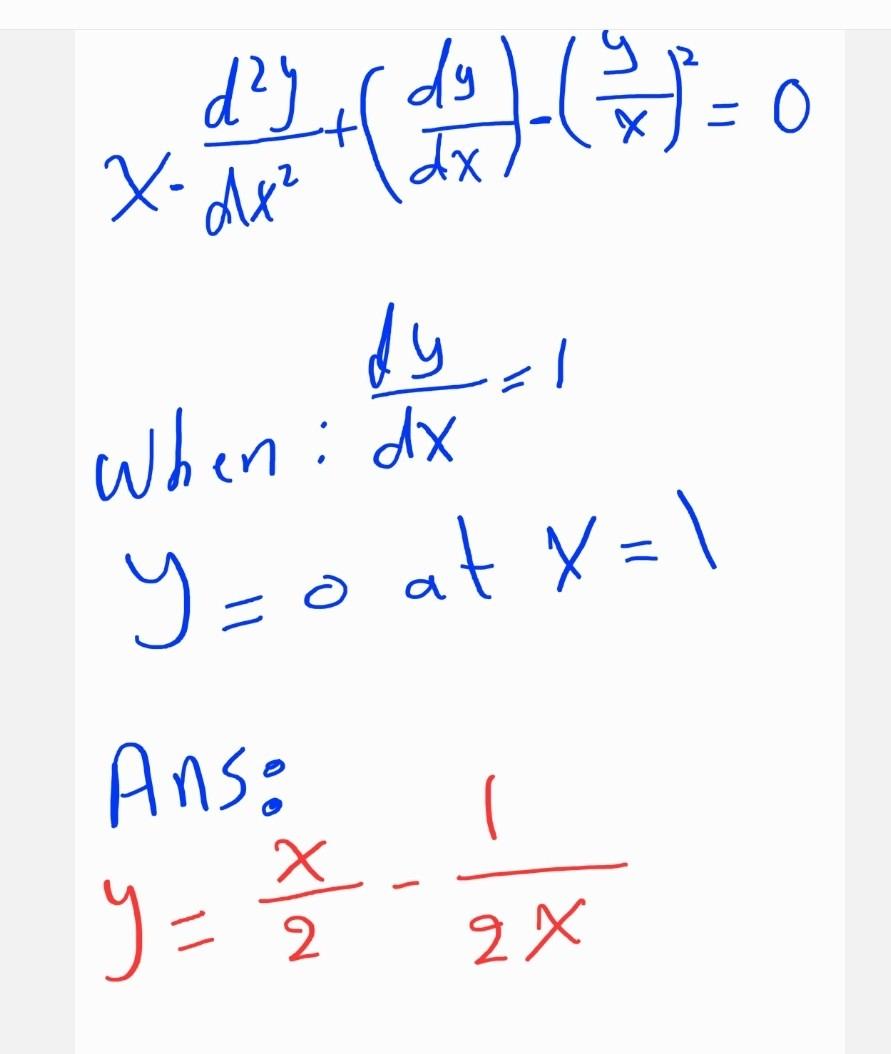 x · d²y/dx² + (dy/dx) - (y/x)² = 0
When : dy/dx = 1
y = 0 at x = 1
Ans:
y = x/2 - 1/2x